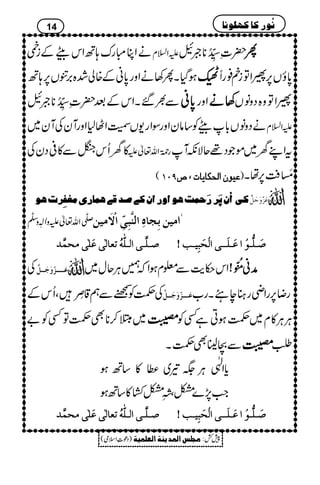 نُور کا کھلونا
14
پھر حضرت سیِّدُنا جبرئیل علیہ السلام نے اپنا مبارک ہاتھ اس بیٹے کے زخمی
پاؤں پر پھیرا تو زخم فوراً ٹھیک ہو گیا۔ پھر کھانے اور پانی کے خالی شدہ برتنوں پر ہاتھ
پھیرا تو وہ دونوں کھانے اور پانی سے بھر گئے۔ اس کے بعد حضرت سیِّدُنا جبرئیل
علیہ السلام نے دونوں باپ بیٹے کو سامان اور سواریوں سمیت اٹھا لیا اور آن کی آن میں
یہ اپنے گھر میں موجود تھے حالانکہ آپ رحمۃ اللہ تعالٰی علیہ کا گھر اُس جنگل سے کافی دن کی
مَسافت پر تھا۔ (عیون الحکایات ، ص ۱۰۹)
اللہ عَزَّوَجَلَّ کی اُن پَر رَحمت ھو اور ان کے صدقے ھماری مغفِرت ھو
اٰمین بِجاہِ النَّبِیِّ الْاَمین صلَّی اللہ تعالٰی علیہ واٰلہٖ وسلَّم
صَلُّوْا عَلَی الْحَبِیب ! صلَّی اللہُ تعالٰی عَلٰی محمَّد
مدنی مُنّو! اس حکایت سے معلوم ہوا کہ ہمیں ہر حال میں اللہ عَزَّوَجَلَّ کی
رضا پر راضی رہنا چاہئے۔ رب عَزَّوَجَلَّ کی حکمت کو سمجھنے سے ہم قاصِر ہیں، اُس کے
ہر ہر کام میں حکمت ہوتی ہے کسی کو مصیبت میں مبتَلا کرنا بھی حکمت تو کسی کو بے
طلب مصیبت سے بچا لینا بھی حکمت۔
یا الٰہی ہر جگہ تیری عطا کا ساتھ ہو
جب پڑے مشکل شہِ مشکل کشا کا ساتھ ہو
صَلُّوْا عَلَی الْحَبِیب ! صلَّی اللہُ تعالٰی عَلٰی محمَّد
پیش کش: مجلس المدینۃ العلمیۃ (دعوتِ اسلامی)